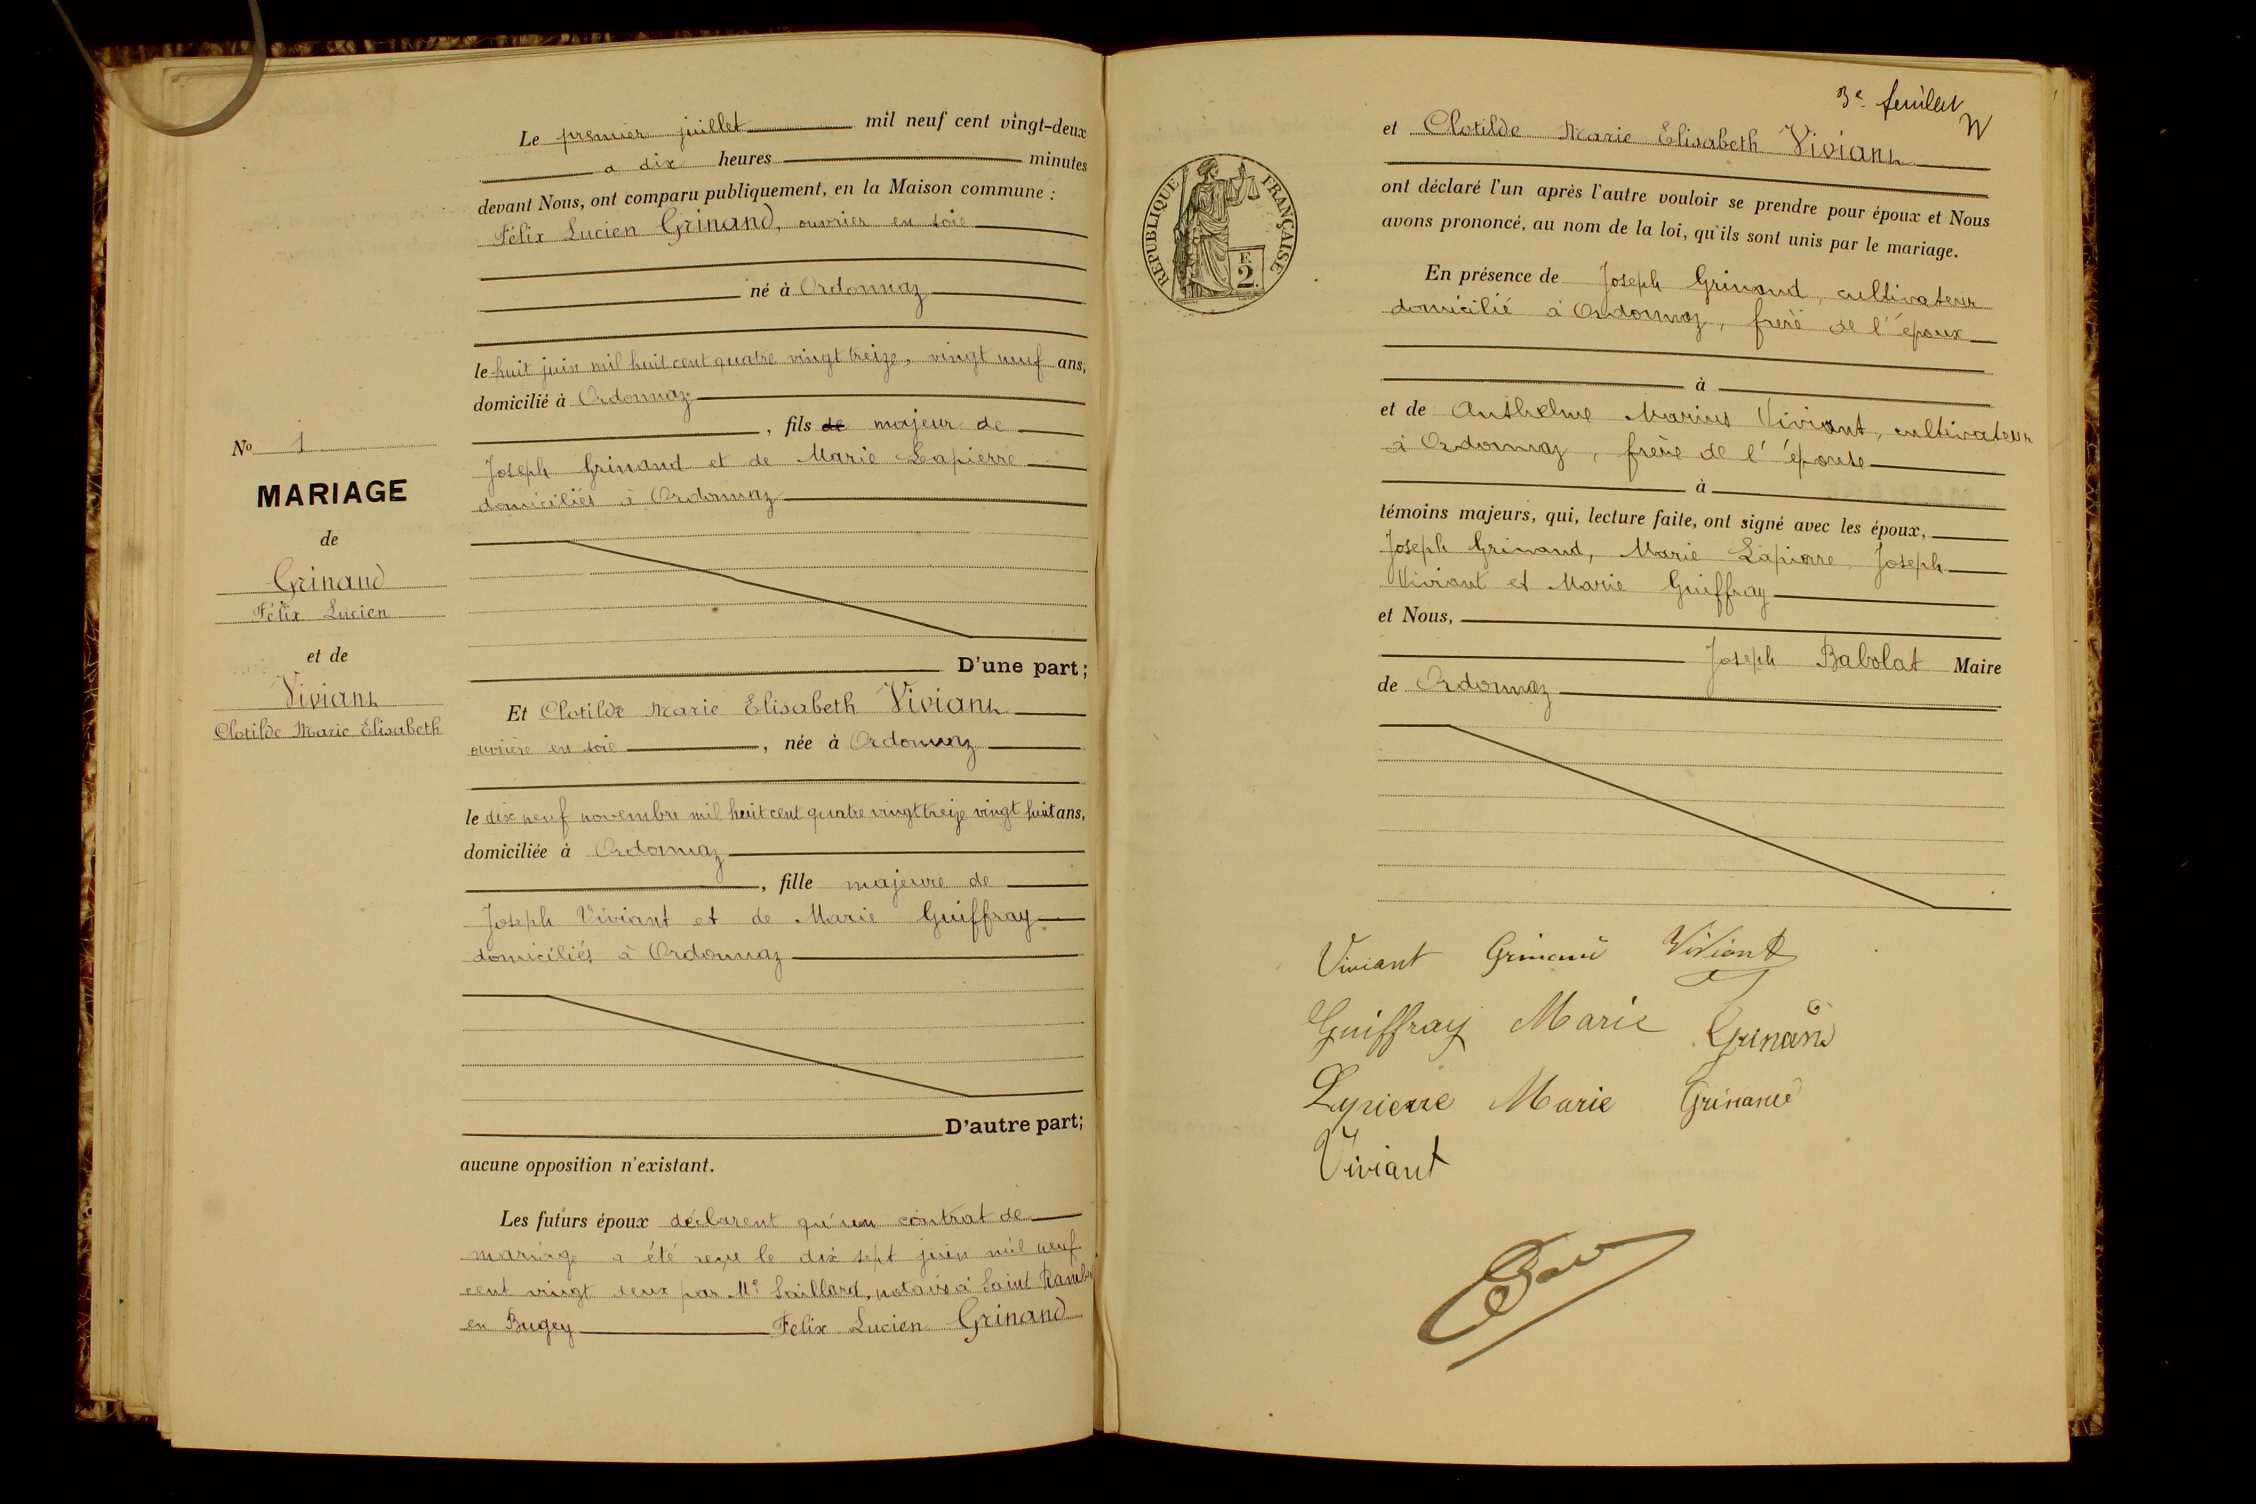 Le premier juillet mil neuf cent vingt-deux
a dix heures minutes
devant Nous, ont comparu publiquement, en la Maison commune :
Félix Lucien Grinand, ouvrier en soie
né à Ordonnaz
le huit juin mil huit cent quatre vingt treize, vingt neuf ans,
domicilié à Ordonnaz
, fils de majeur de
Joseph Grinand et de Marie Lapierre
domiciliés à Ordonnaz
D'une part;
Et Clotilde Marie Elisabeth Viviant
ouvrière en soie, née à Ordonnaz
le dix neuf novembre mil huit cent quatre vingt treize vingt huit ans,
domiciliée à Ordonnaz
, fille majeure de
Joseph Viviant et de Marie Guiffray
domiciliés à Ordonnaz
D'autre part;
aucune opposition n'existant.
Les futurs époux déclarent qu'un contrat de
mariage a été reçu le dix sept juin mil neuf
cent vingt deux par Me Saillard, notaire à Saint Rambert
en Bugey Felix Lucien Grinand
No 1
MARIAGE
de
Grinand
Félix Lucien
et de
Viviant
Clotilde Marie Elisabeth
3e feuillet
et Clotilde Marie Elisabeth Viviant
ont déclaré l'un après l'autre vouloir se prendre pour époux et Nous
avons prononcé, au nom de la loi, qu'ils sont unis par le mariage.
En présence de Joseph Grinand, cultivateur
domicilié à Ordonnaz, frère de l'époux
à
et de Anthelme Marius Viviant, cultivateur
à Ordonnaz, frère de l'épouse
à
témoins majeurs, qui, lecture faite, ont signé avec les époux,
Joseph Grinand, Marie Lapierre, Joseph
Viviant et Marie Guiffray
et Nous,
Joseph Babolat Maire
de Ordonnaz
RÉPUBLIQUE FRANÇAISE
F.
2.
Viviant Grinand Viviant
Guiffray Marie Grinand
Lapierre Marie Grinand
Viviant